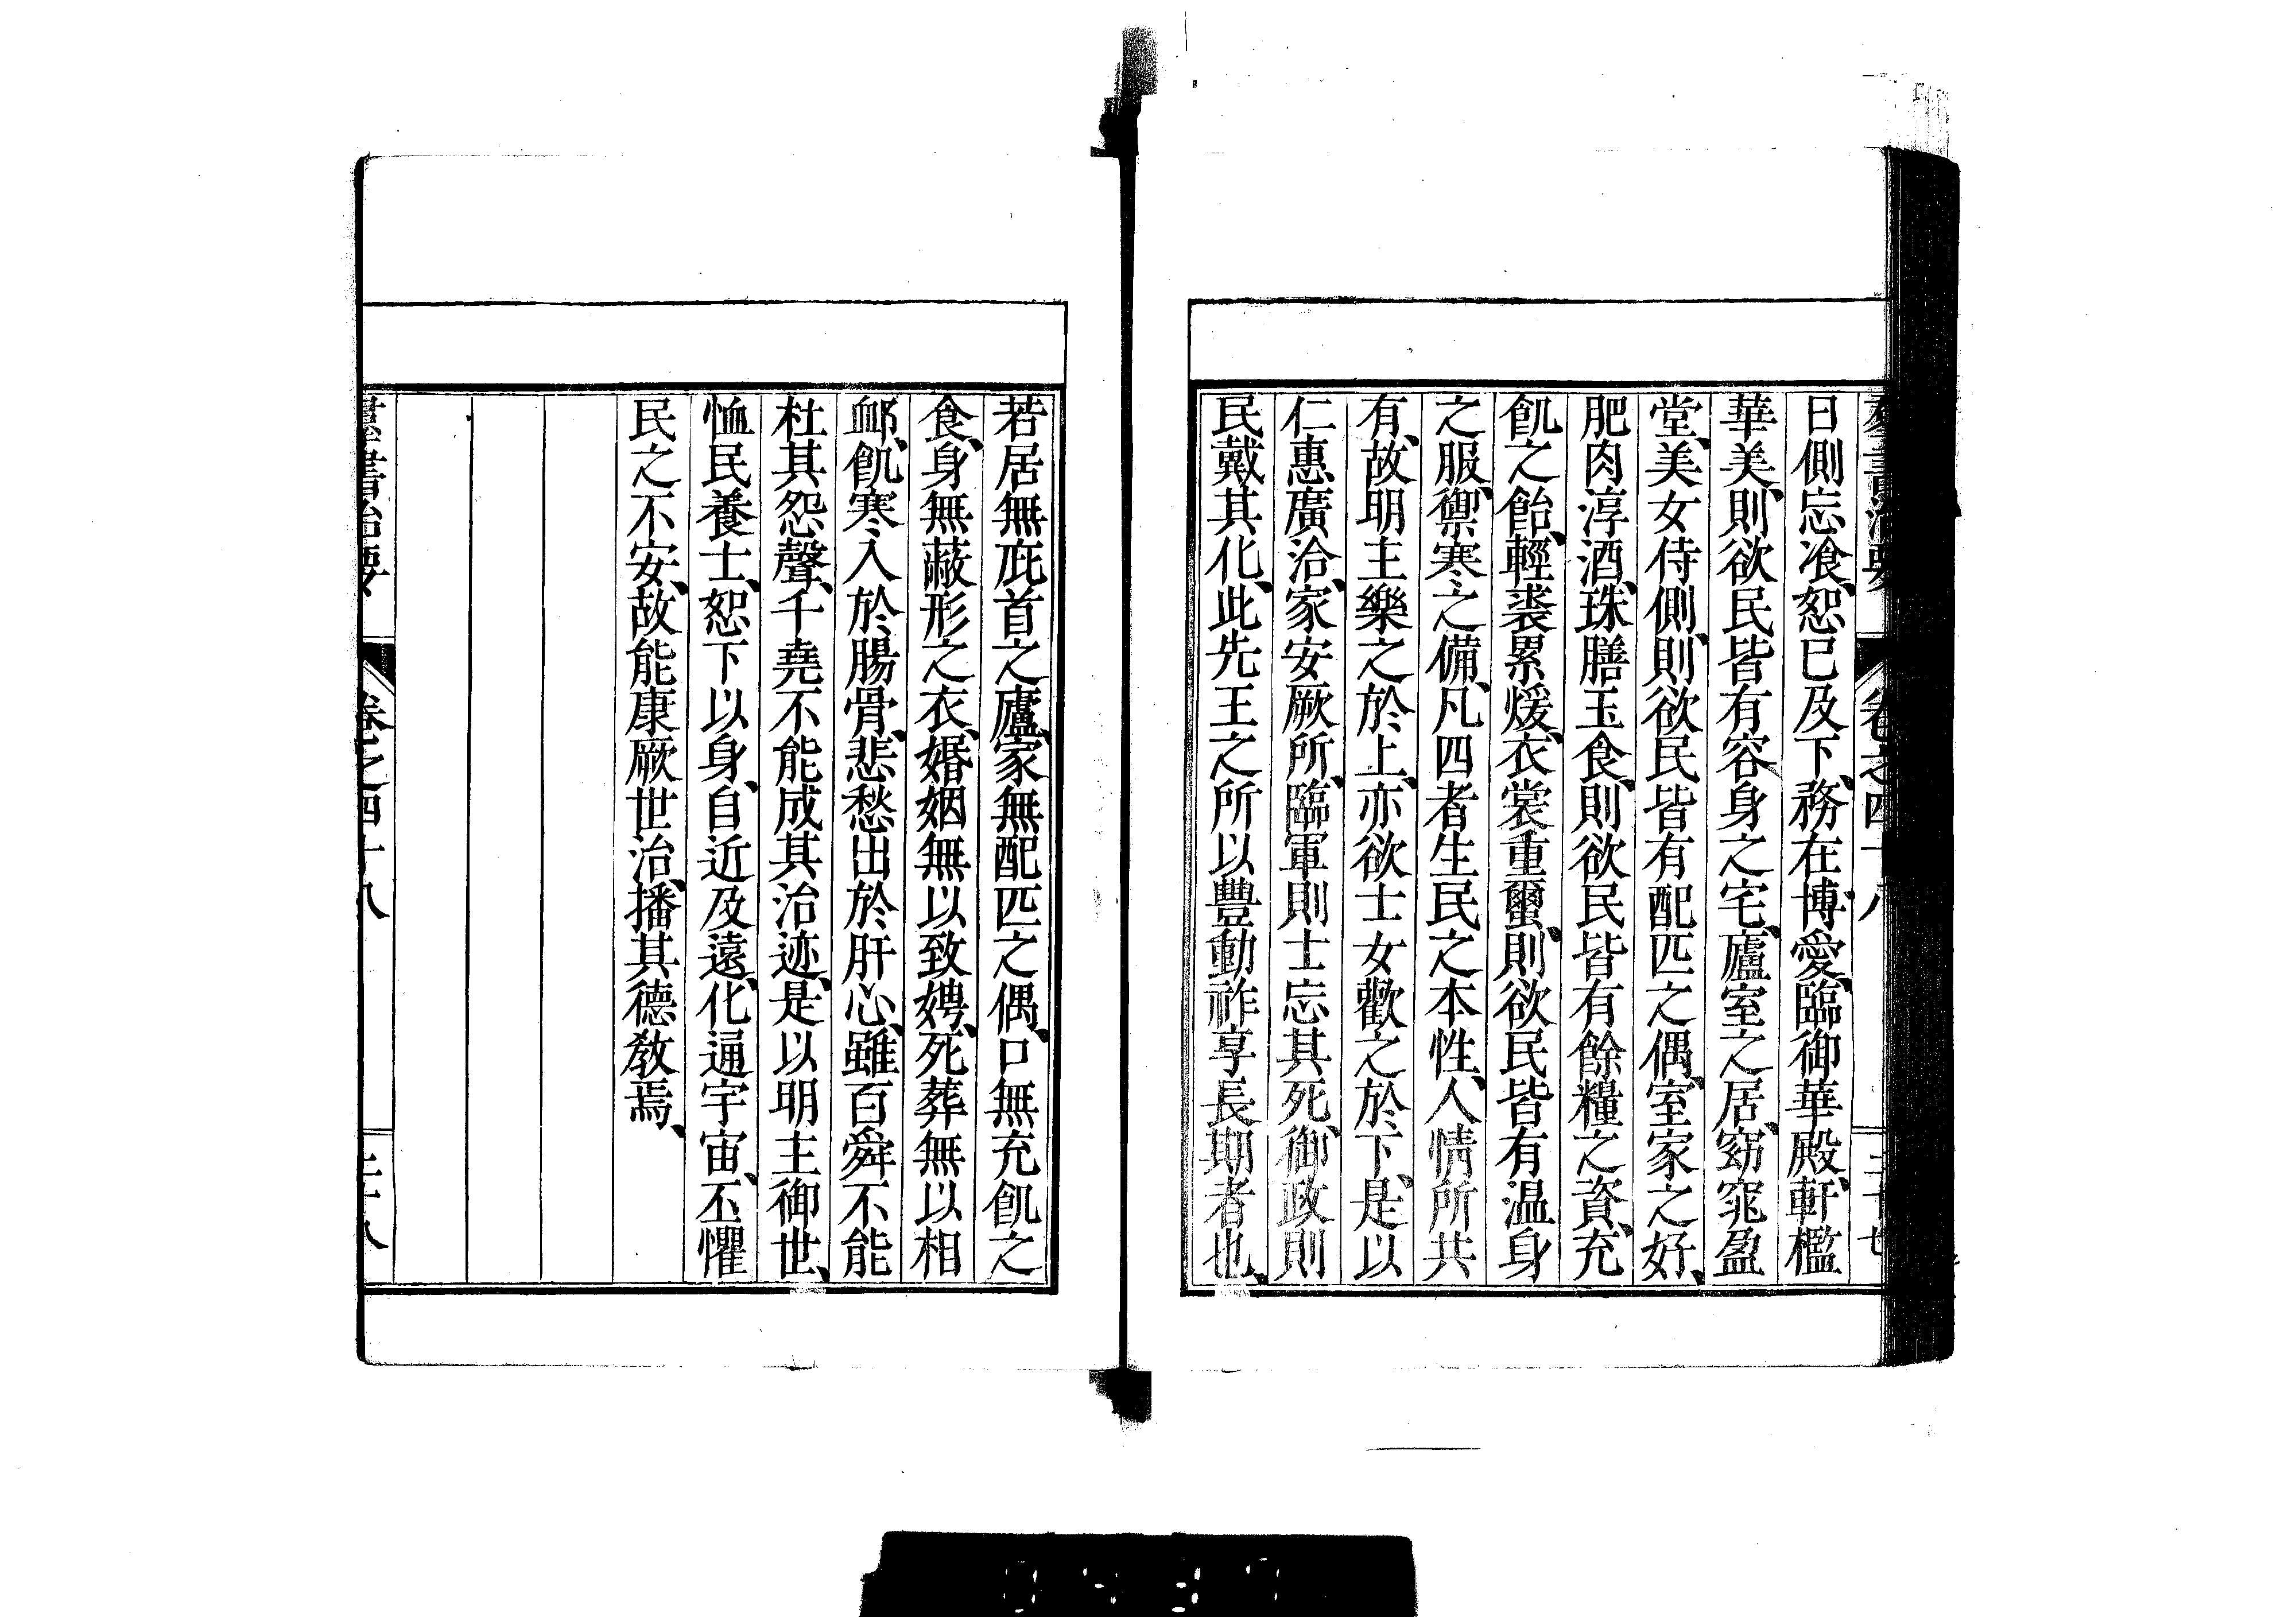 羣書治要 卷之四十八 三十七
日側忘飡、恕己及下、務在博愛、臨御華殿、軒檻
華美、則欲民皆有容身之宅、廬室之居、窈窕盈
堂、美女侍側、則欲民皆有配匹之偶、室家之好、
肥肉淳酒、珠膳玉食、則欲民皆有餘糧之資、充
飢之飴、輕裘累煖、衣裳重蠒、則欲民皆有温身
之服、禦寒之備、凡四者生民之本性、人情所共
有、故明主樂之於上、亦欲士女歡之於下、是以
仁惠廣洽、家安厥所、臨軍則士忘其死、御政則
民戴其化、此先王之所以豐動祚享長期者也、
若居無庇首之廬、家無配匹之偶、口無充飢之
食、身無蔽形之衣、婚姻無以致娉、死葬無以相
䘏、飢寒入於腸骨、悲愁出於肝心、雖百舜不能
杜其怨聲、千堯不能成其治迹、是以明主御世、
恤民養士、恕下以身、自近及遠、化通宇宙、丕懼
民之不安、故能康厥世治、播其德教焉、
羣書治要 卷之四十八 三十八